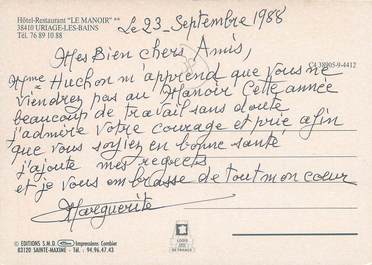 Hôtel-Restaurant "LE MANOIR" **
38410 URIAGE-LES-BAINS
Tél. 76 89 10 88
Le 23 Septembre 1988
Mes Bien chers Amis,
CA 38905-9-4412
Mme Huchon m'apprend que vous ne
viendrez pas au Manoir cette année
beaucoup de travail sans doute
j'admire votre courage et prie afin
que vous soyiez en bonne santé
j'ajoute mes regrets
et je vous embrasse de tout mon coeur
Marguerite
© EDITIONS S.M.D. Impressions Combier
83120 SAINTE-MAXIME - Tél. : 94.96.47.43
LOGIS
DE FRANCE